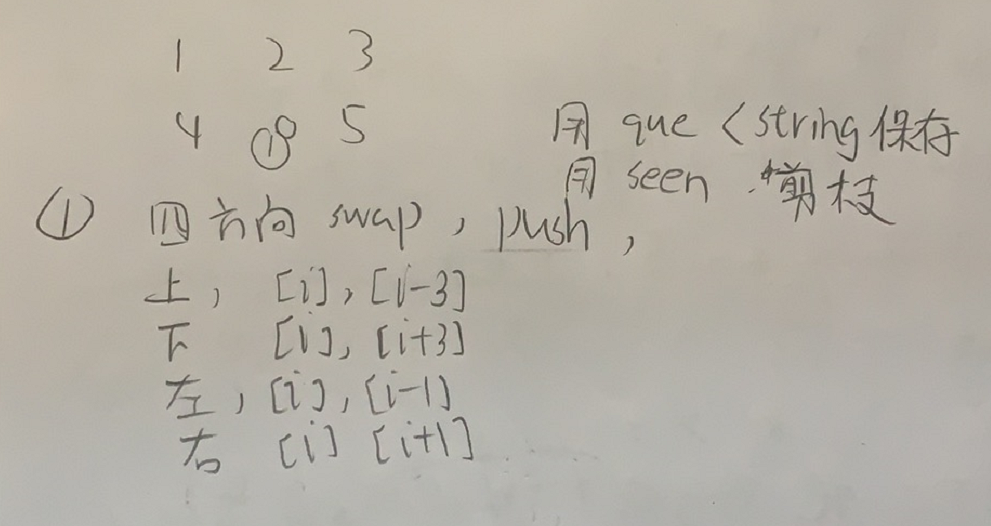 1 2 3
4 0 5
用 que <string 保存
用 seen 剪枝
① 四方向 swap, push,
上, [i], [i-3]
下 [i], [i+3]
左, [i], [i-1]
右 [i] [i+1]